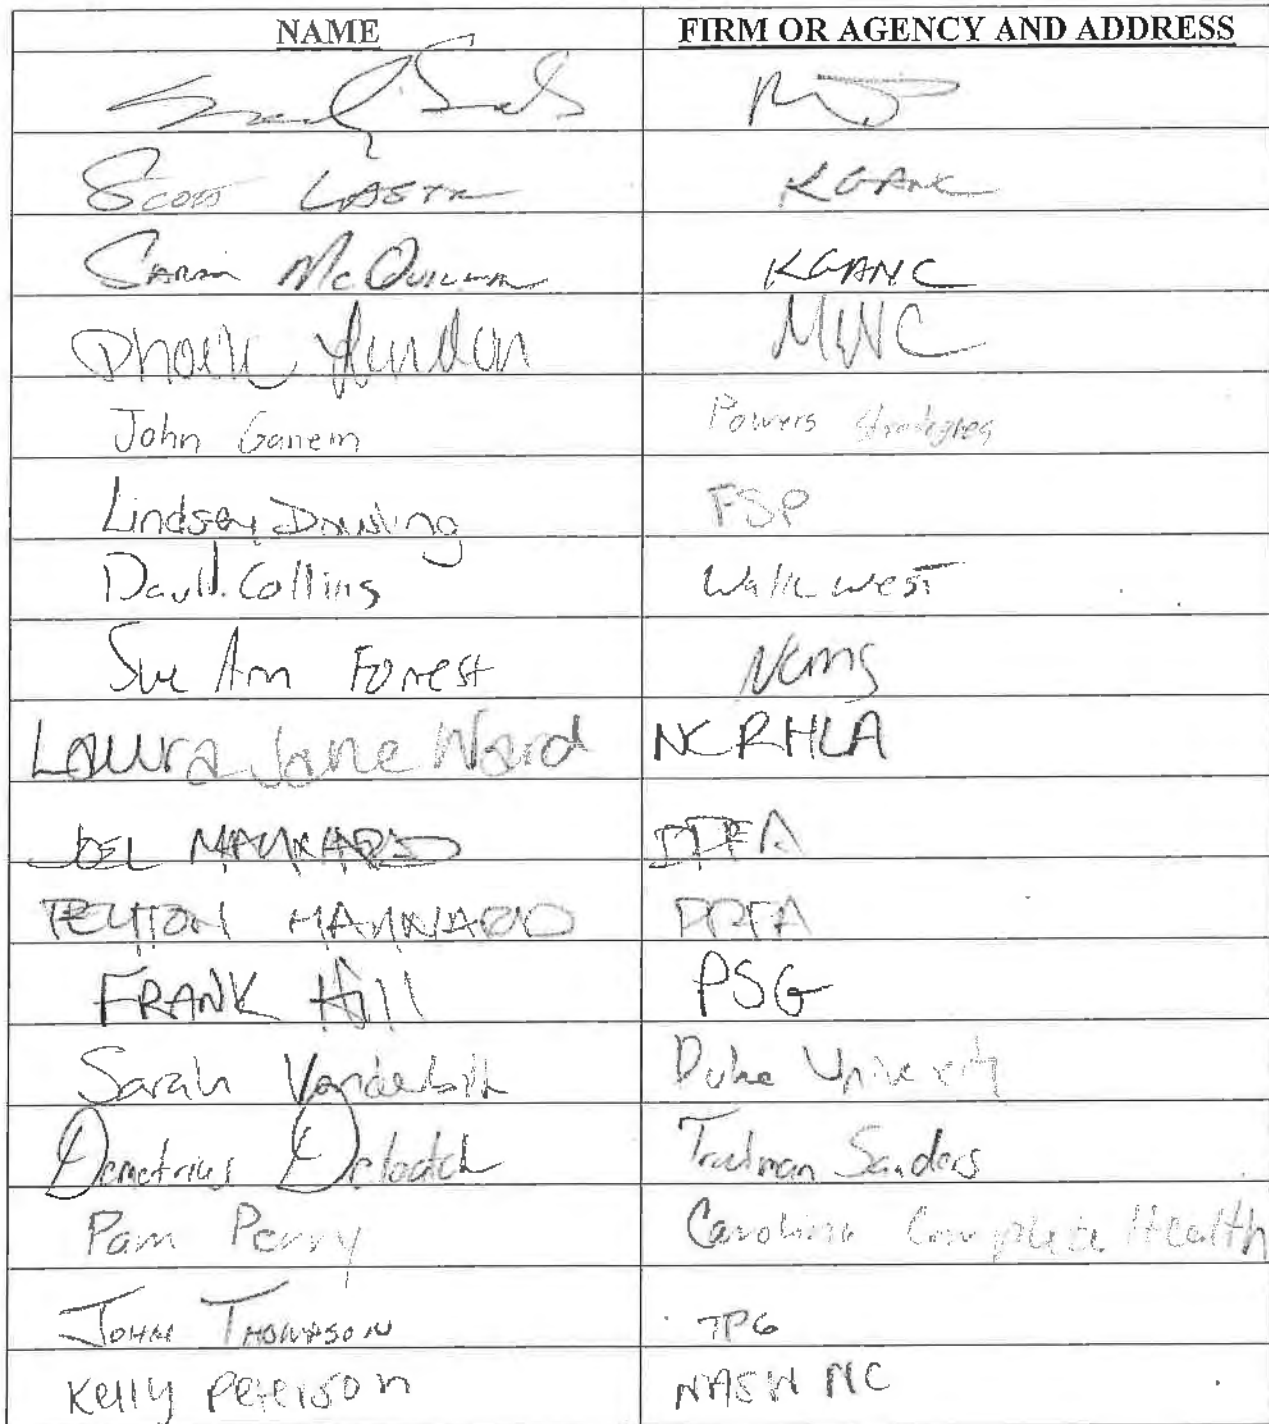 NAME FIRM OR AGENCY AND ADDRESS
Scott KGANC
Sarah McQuillan KGANC
MWC
John Ganem Powers Strategies
Lindsey Dowling FSP
David Collins Walk West
Sue Ann Forrest NCMS
Laura Jane Ward NCRHLA
JOEL MAYNARD PPFA
PEYTON MAYNARD PPFA
FRANK Hill PSG
Sarah Vanderbilt Duke University
Demetrius Deloatch Troutman Sanders
Pam Perry Carolina Complete Health
John Thompson TPG
Kelly Peterson NASW NC